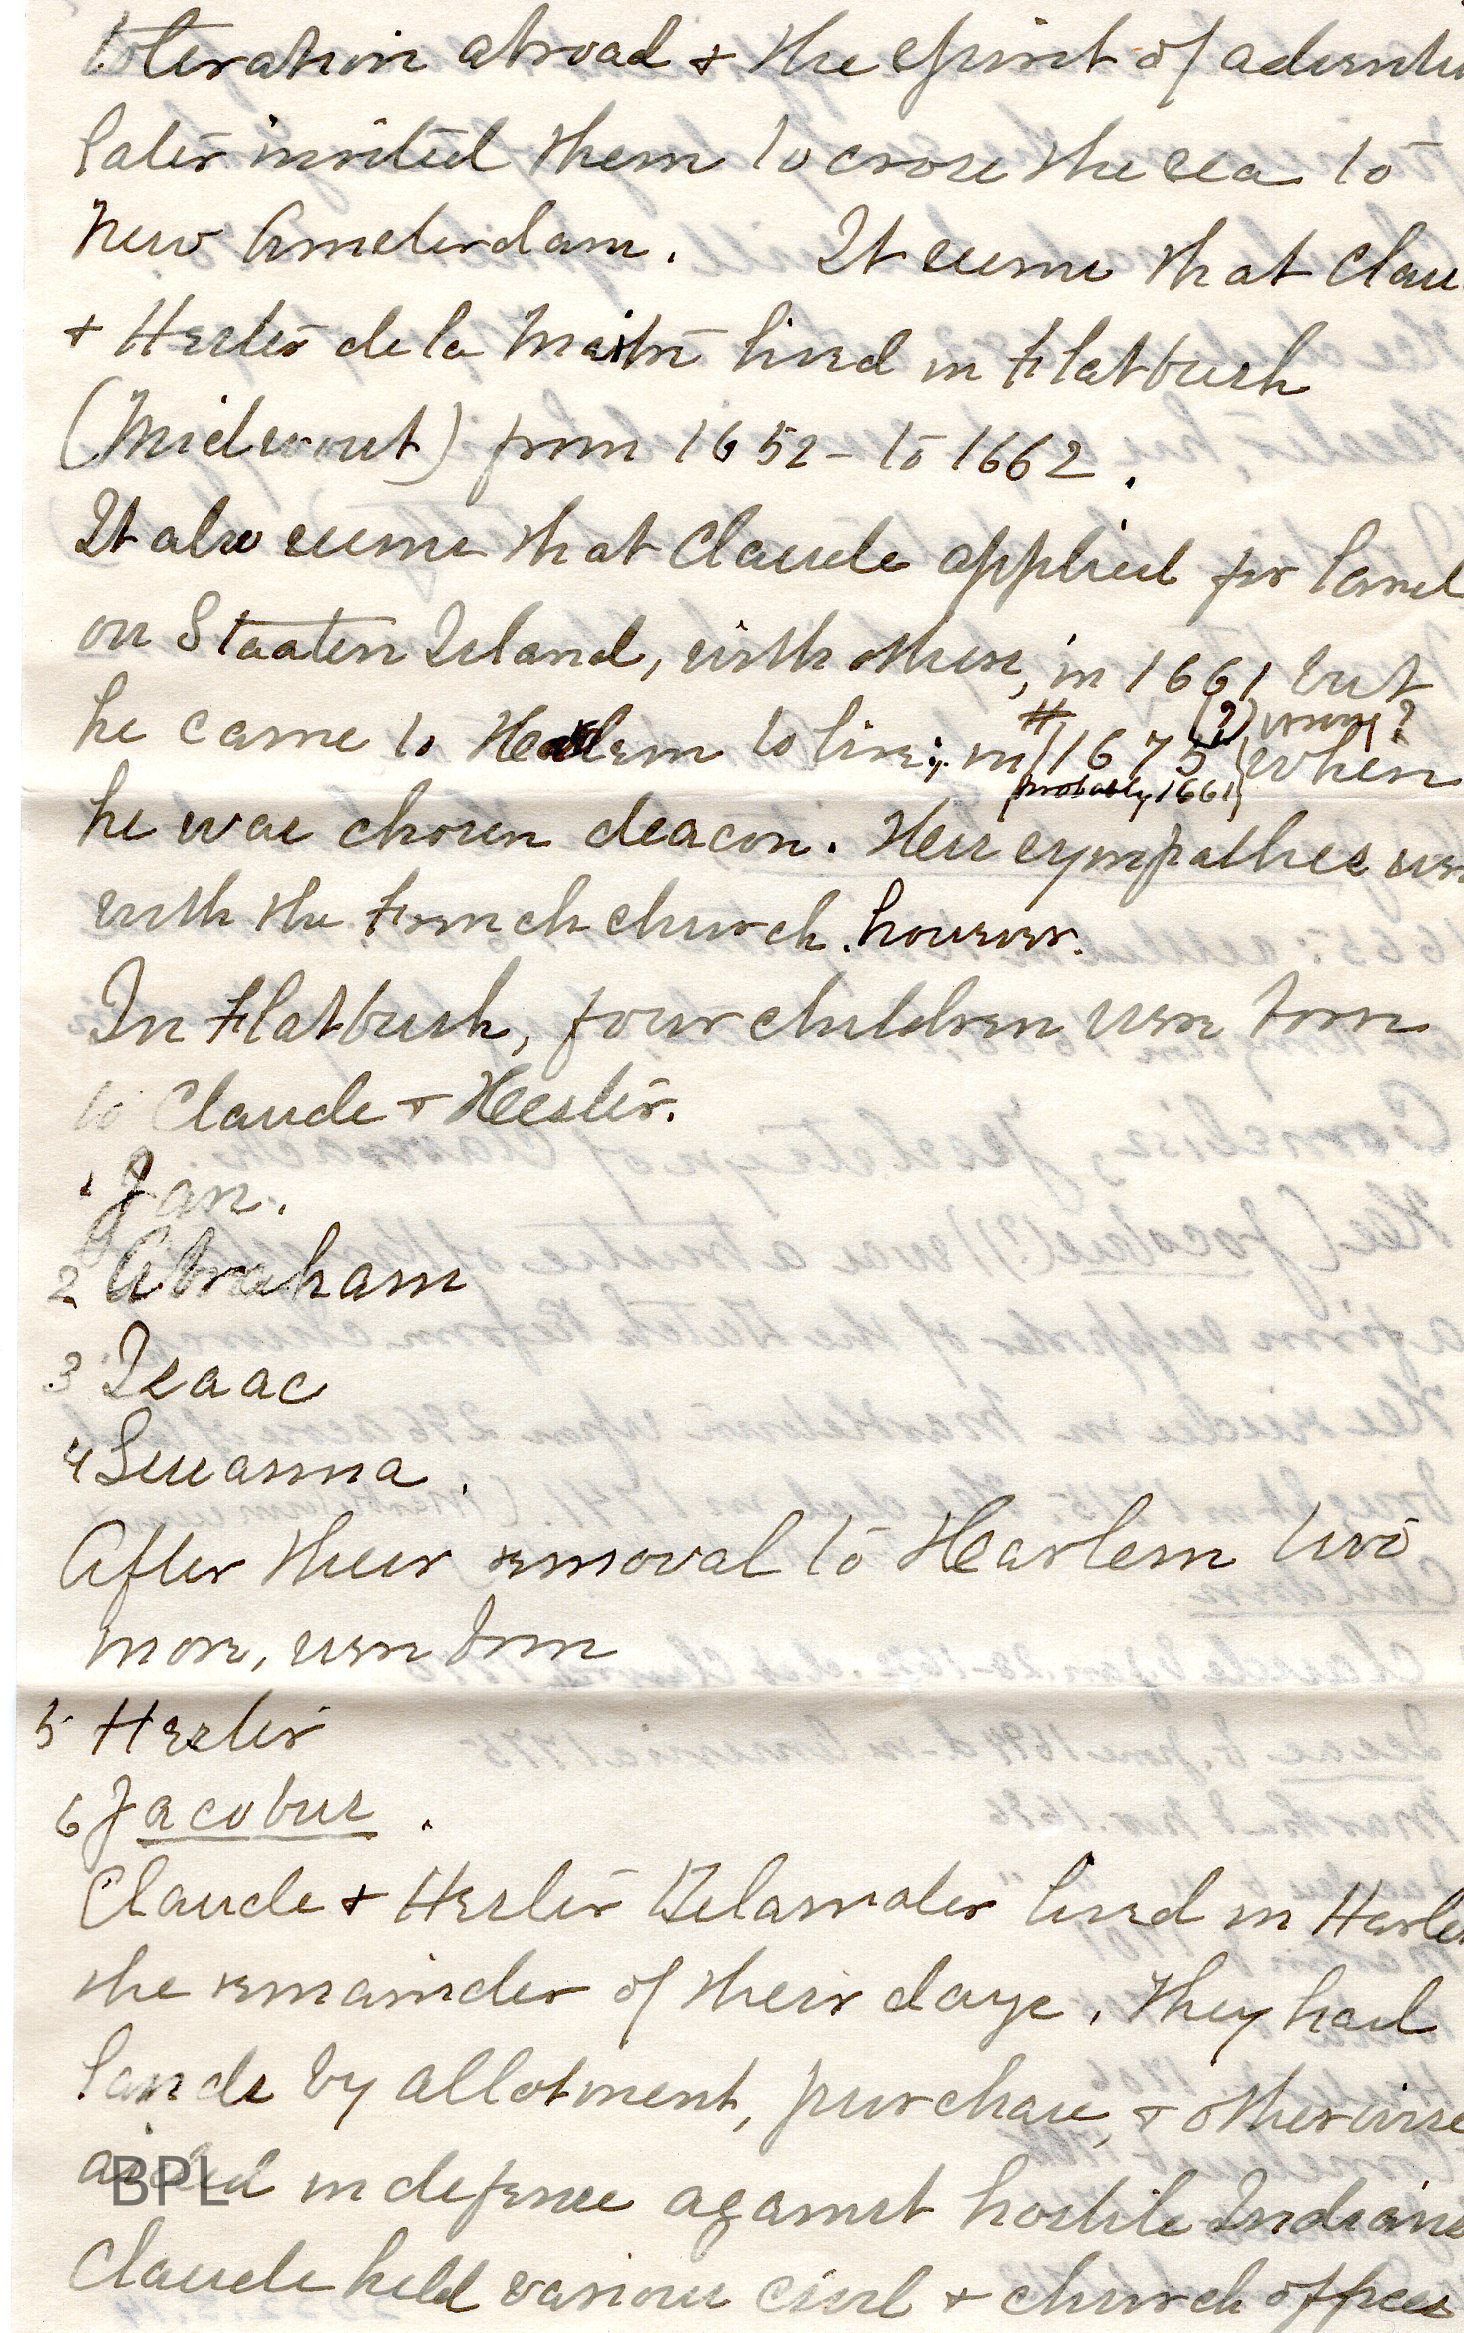 toleration abroad & the spirit of adventu
later invited them to cross the sea to
New Amsterdam. It seems that Clau
& Hester de la Maitre lived in Flatbush
(Midwout) from 1652 - to 1662.
It also seems that Claude applied for land
on Staaten Island, with others, in 1661 but
(?) wrong?
he came to Harlem to live; in 1675 when
(probably 1661)
he was chosen deacon. His sympathies wer
with the French church. however.
In Flatbush, four children were born
to Claude & Hester.
1 Jan.
2 Abraham
3 Isaac
4 Susanna.
After their removal to Harlem two
more, were born
5 Hester
6 Jacobus.
Claude & Hester Delamater lived in Harle
the remainder of their days. They had
lands by allotment, purchase, & otherwise
aided in defense against hostile Indians
Claude held various civil & church offices
BPL